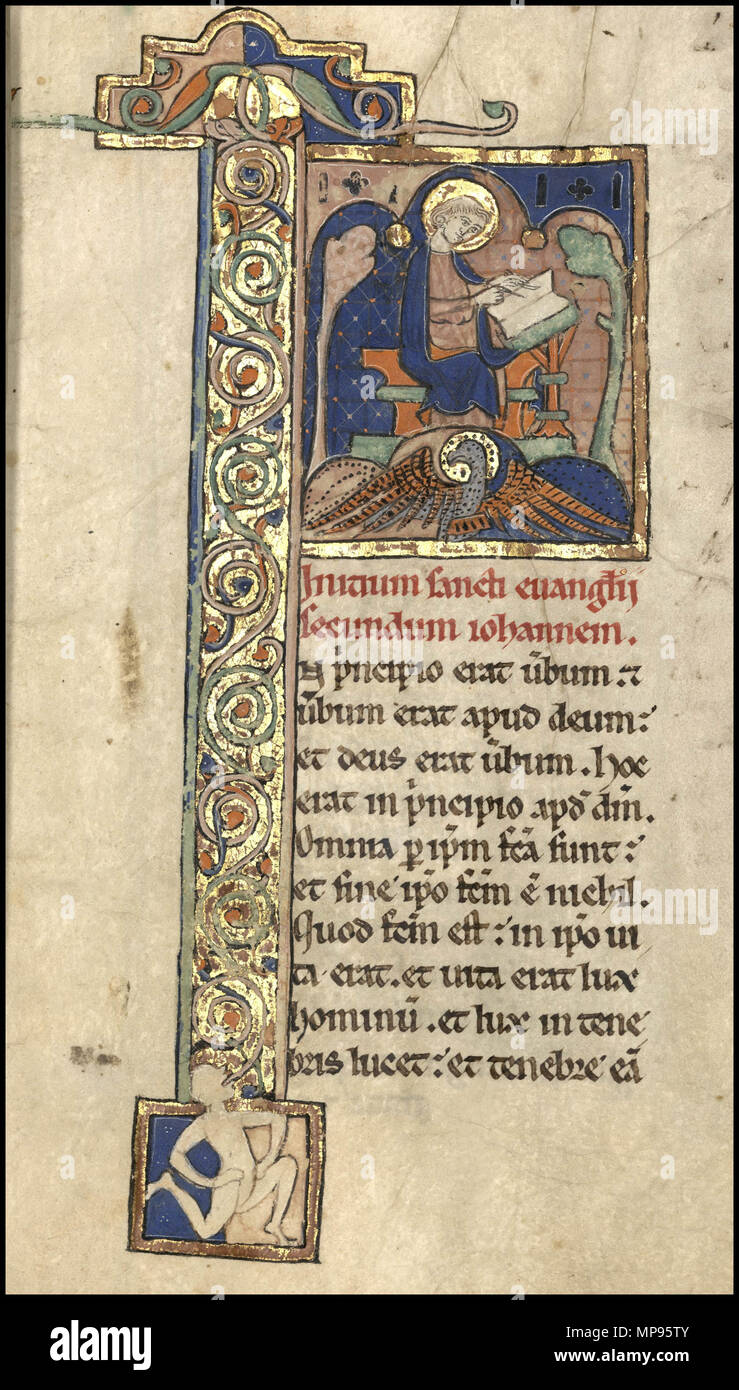 Initium sancti euanglij
secundum iohannem.
N p̍ncipio erat ūbum : ⁊
ūbum erat apud deum :
et deus erat ūbum . hoc
erat in p̍ncipio apd̓ dm̄ .
Omnia ꝑ ip̄m fcā sunt :
et sine ip̄o fcm̄ ē nichil .
Quod fcm̄ est : in ip̄o ui
ta erat . et uita erat lux
hominū . et lux in tene
bris lucet : et tenebre eā
alamy
Image ID: MP95TY
www.alamy.com